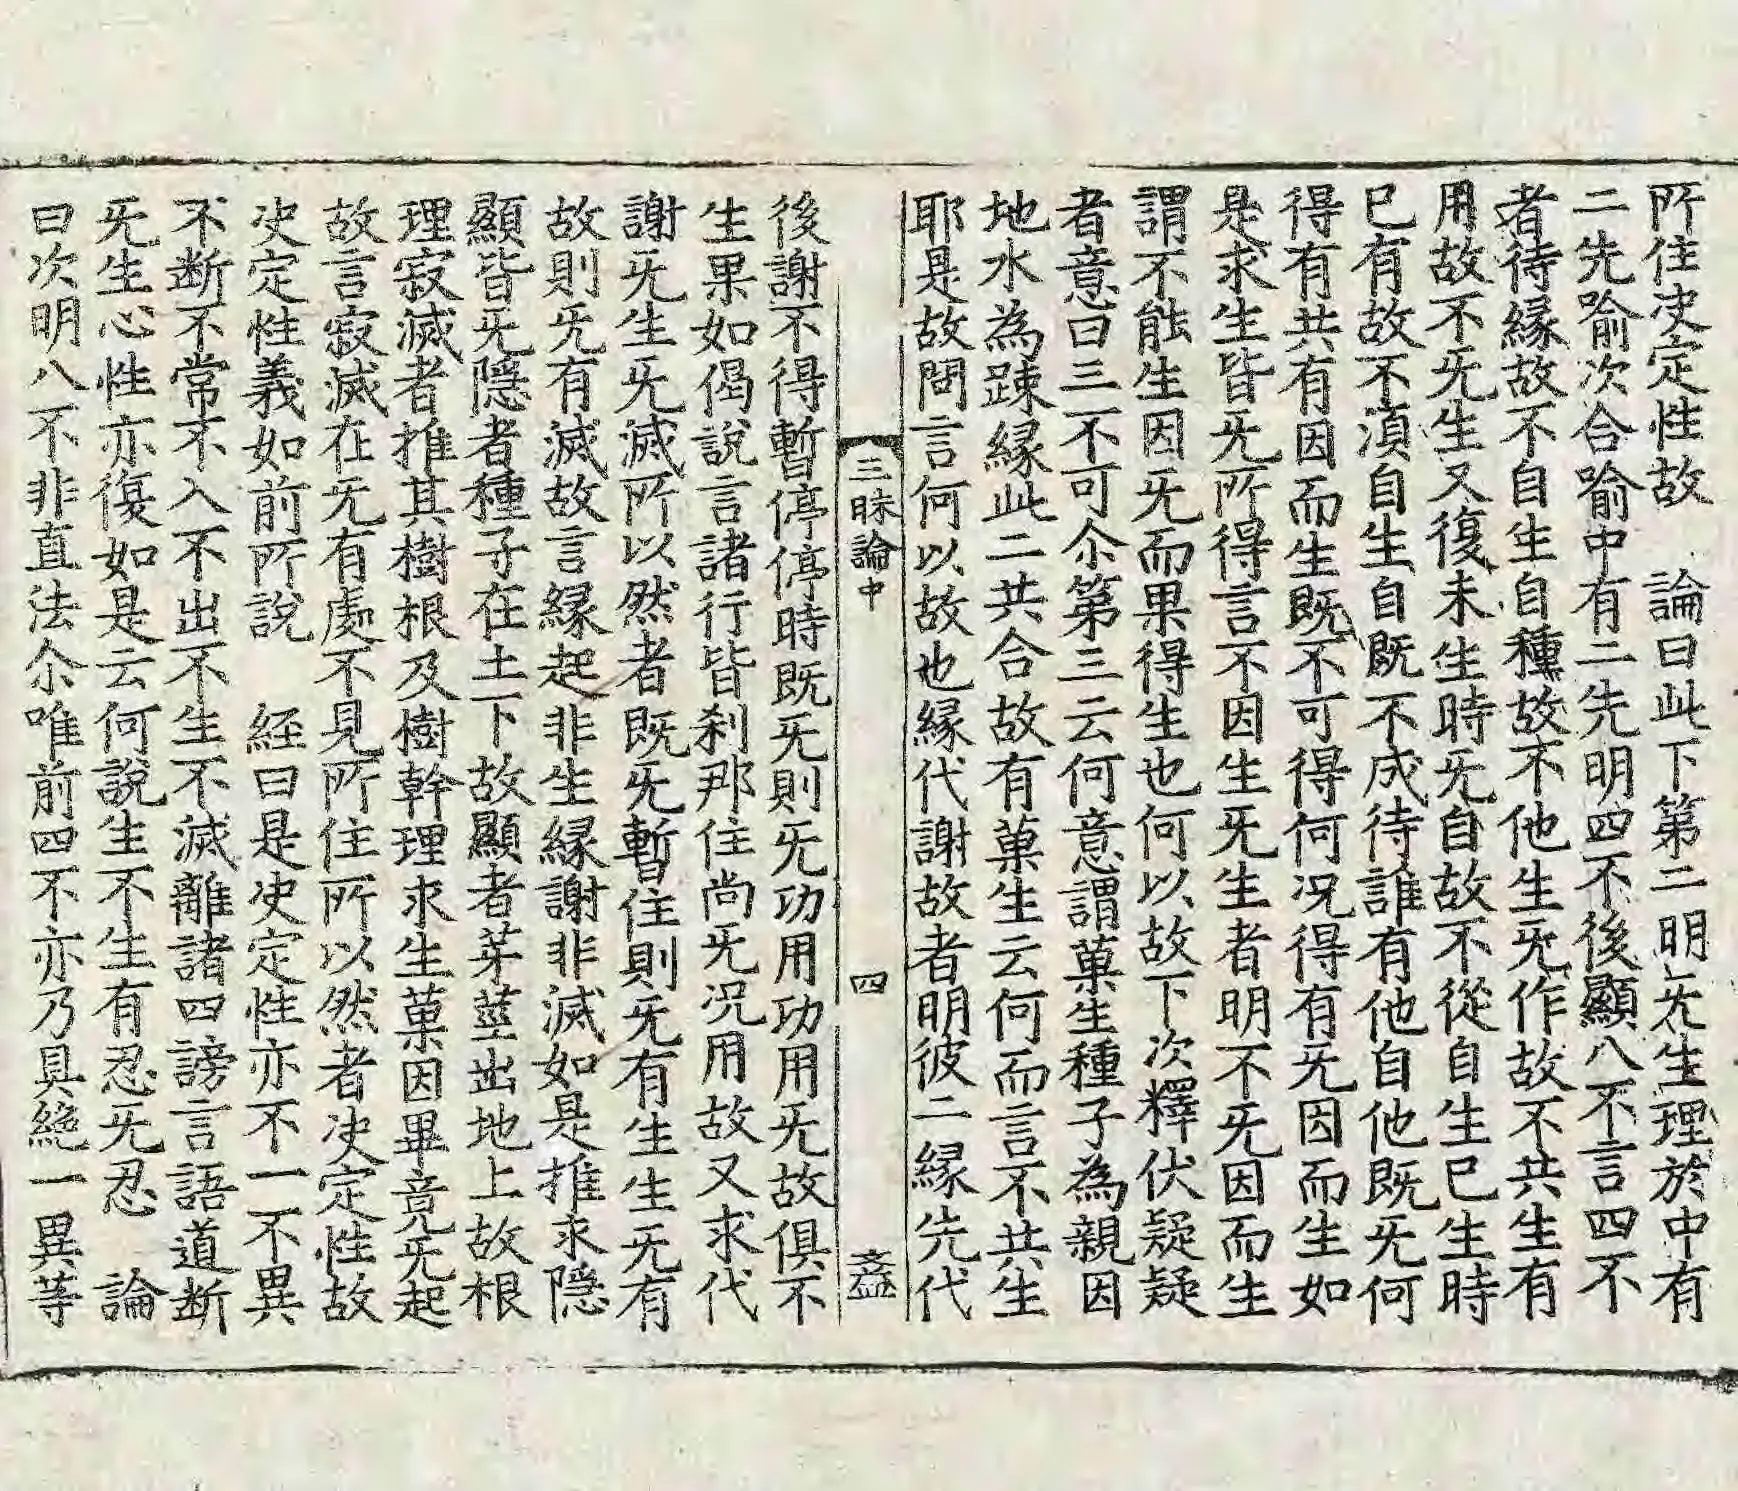 所住决定性故　論曰此下第二明旡生理於中有
二先喻次合喻中有二先明四不後顯八不言四不
者待縁故不自生自種故不他生旡作故不共生有
用故不旡生又復未生時旡自故不從自生已生時
已有故不湏自生自既不成待誰有他自他既旡何
得有共有因而生既不可得何况得有旡因而生如
是求生皆旡所得言不因生旡生者明不旡因而生
謂不能生因旡而果得生也何以故下次釋伏疑疑
者意曰三不可尒第三云何意謂菓生種子為親因
地水為踈縁此二共合故有菓生云何而言不共生
耶是故問言何以故也縁代謝故者明彼二縁先代
三昧論中　四　益
後謝不得暫停停時既旡則旡功用功用旡故俱不
生果如偈說言諸行皆刹那住尚旡况用故又求代
謝旡生旡滅所以然者既旡暫住則旡有生生旡有
故則旡有滅故言縁起非生縁謝非滅如是推求隱
顯皆旡隱者種子在土下故顯者芽莖出地上故根
理寂滅者推其樹根及樹幹理求生菓因畢竟旡起
故言寂滅在旡有處不見所住所以然者决定性故
决定性義如前所說　経曰是决定性亦不一不異
不断不常不入不出不生不滅離諸四謗言語道断
旡生心性亦復如是云何說生不生有忍旡忍　論
曰次明八不非直法尒唯前四不亦乃具絶一異等